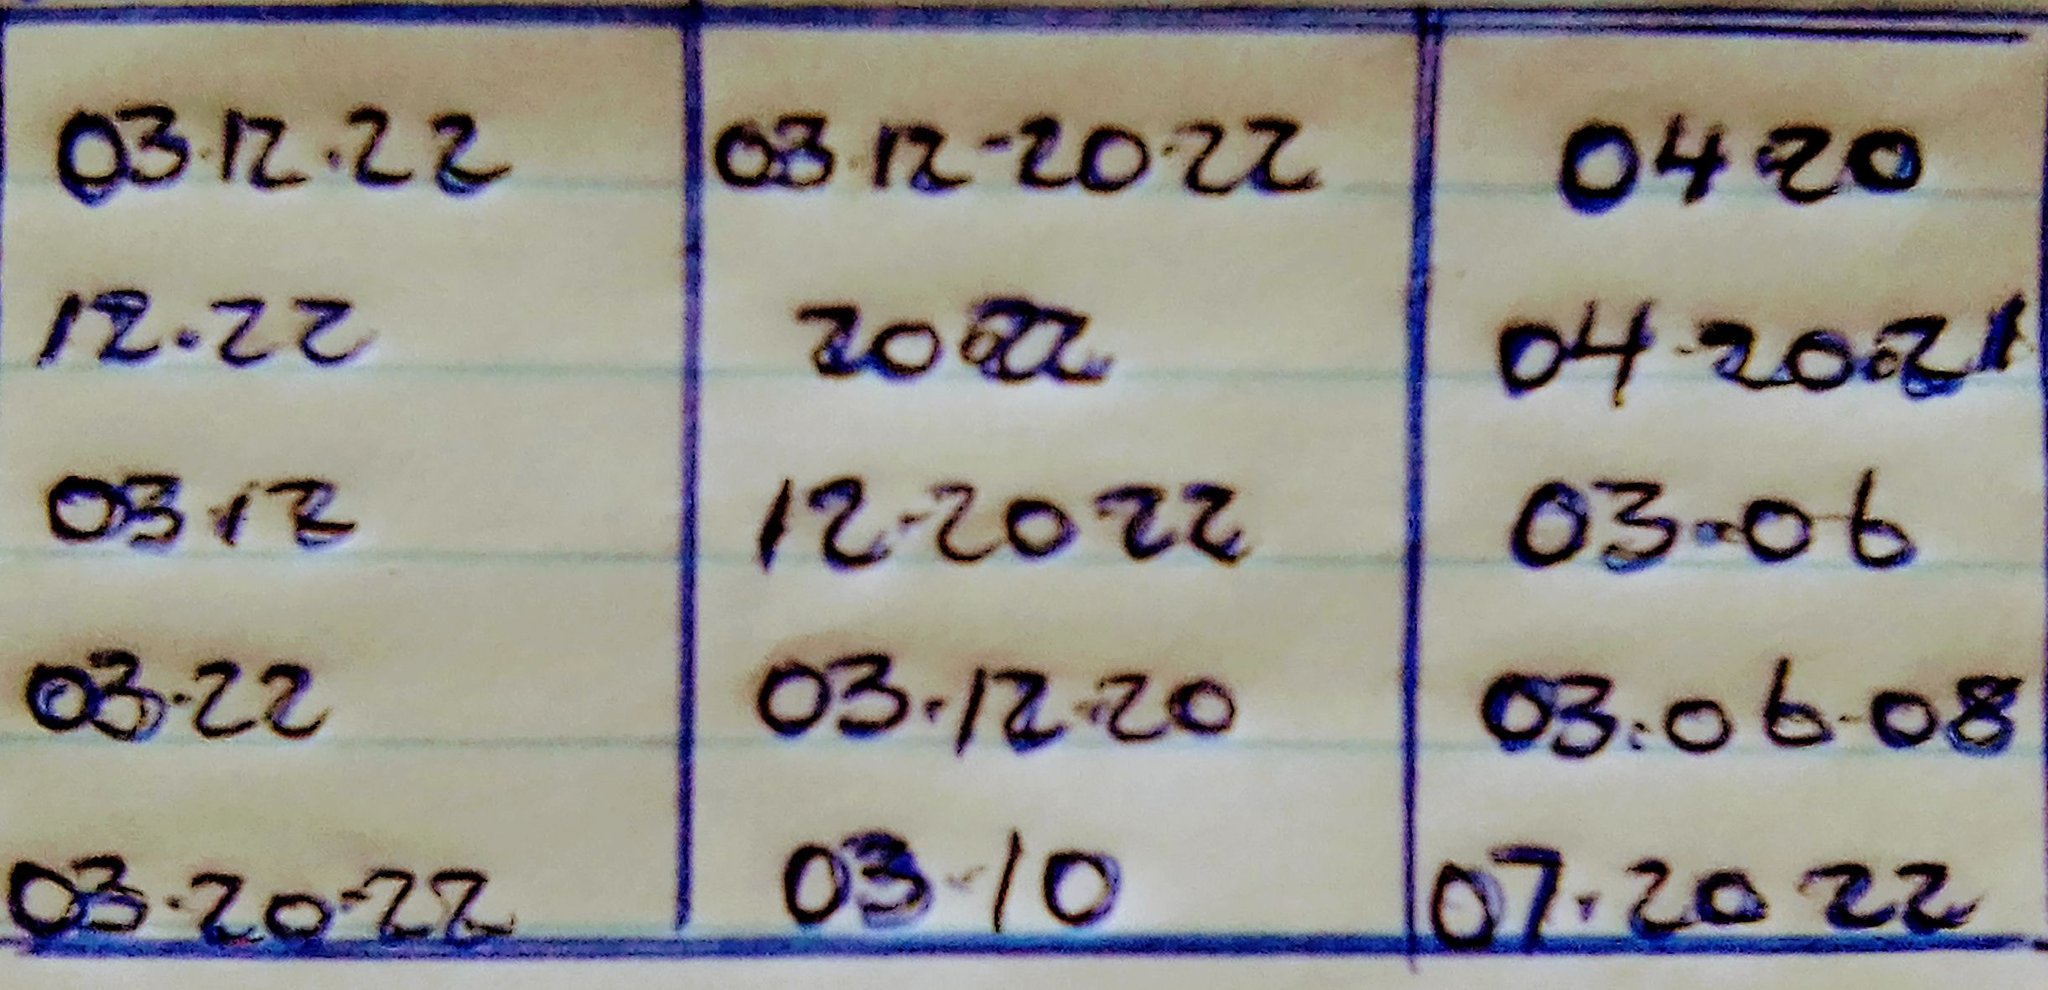 03.12.22 03.12-20.22 04.20
12.22 20.22 04-20.21
03.12 12-20 22 03.06
03.22 03.12.20 03.06-08
03.20-22 03-10 07.20 22